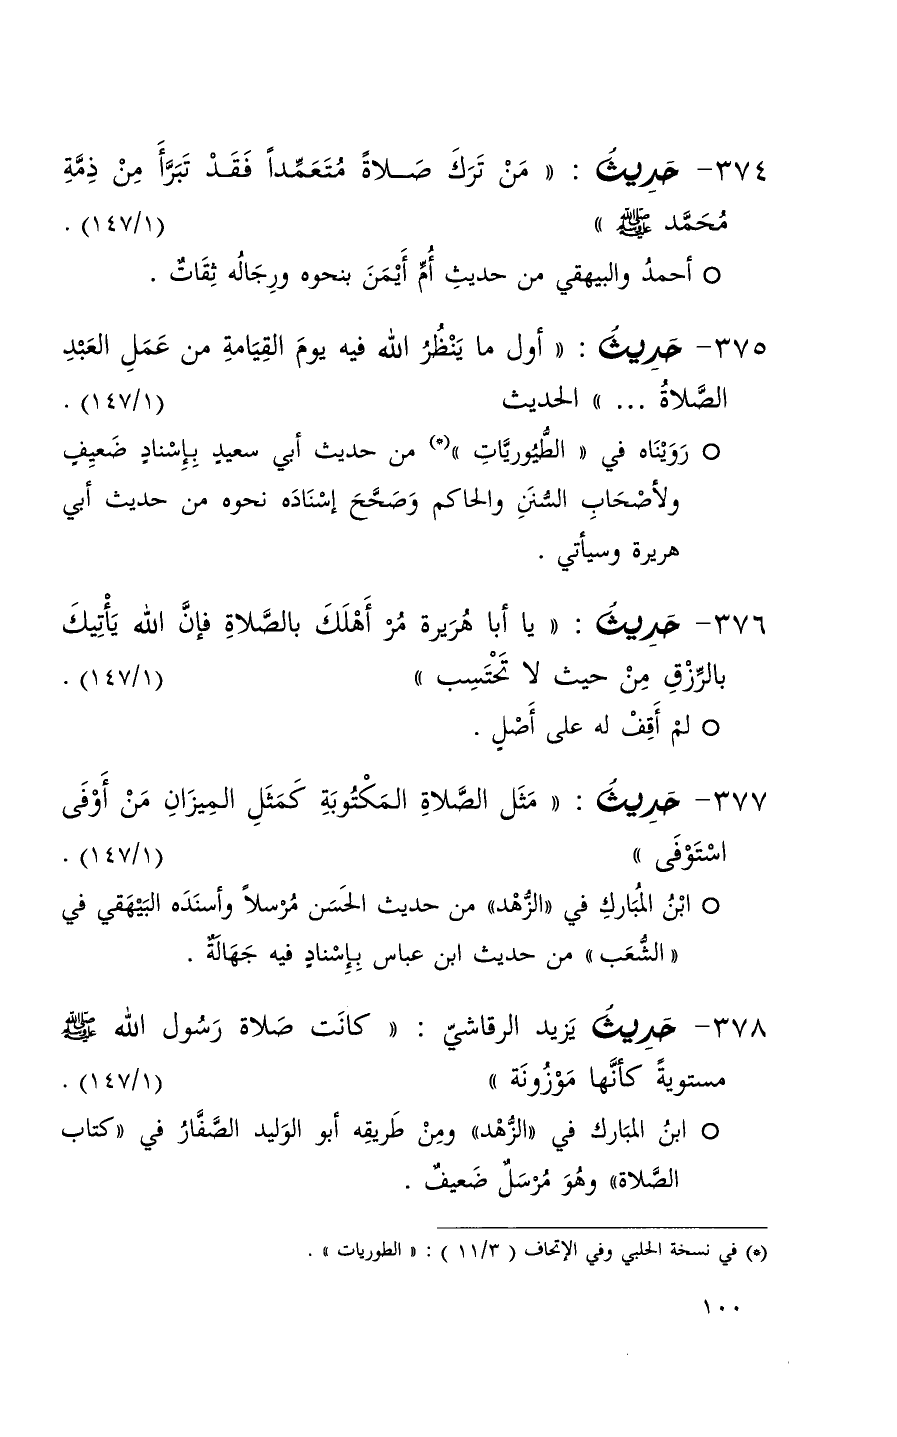 ٣٧٤- حَدِيثُ : « مَنْ تَرَكَ صَلاةً مُتَعَمِّداً فَقَدْ تَبَرَّأَ مِنْ ذِمَّةِ
مُحَمَّد ﷺ » (١٤٧/١) .
○ أحمدُ والبيهقي من حديثِ أُمِّ أَيْمَنَ بنحوه ورِجَالُه ثِقَاتٌ .
٣٧٥- حَدِيثُ : « أول ما يَنْظُرُ الله فيه يومَ القِيَامةِ من عَمَلِ العَبْدِ
الصَّلاةُ ... » الحديث (١٤٧/١) .
○ رَوَيْنَاه في « الطُّيُوريَّاتِ »(*) من حديث أبي سعيدٍ بِإِسْنادٍ ضَعيِفٍ
ولأصْحَابِ السُّنَنِ والحاكم وَصَحَّحَ إسْنَادَه نحوه من حديث أبي
هريرة وسيأتي .
٣٧٦- حَدِيثُ : « يا أبا هُرَيرة مُرْ أَهْلَكَ بالصَّلاةِ فإنَّ الله يَأْتِيكَ
بالرِّزْقِ مِنْ حيث لا تَحْتَسِب » (١٤٧/١) .
○ لمْ أَقِفْ له على أَصْلٍ .
٣٧٧- حَدِيثُ : « مَثَل الصَّلاةِ المَكْتُوبَةِ كَمَثَلِ المِيزَانِ مَنْ أَوْفَى
اسْتَوْفَى » (١٤٧/١) .
○ ابْنُ المُبَاركِ في «الزُّهْد» من حديث الحَسَن مُرْسلاً وأسنَدَه البَيْهَقي في
« الشُّعَب » من حديث ابن عباس بِإِسْنادٍ فيه جَهَالَةٌ .
٣٧٨- حَدِيثُ يَزيد الرقاشيّ : « كانَت صَلاة رَسُول الله ﷺ
مستويةً كأنَّها مَوْزُونَة » (١٤٧/١) .
○ ابنُ المبَارك في «الزُّهْد» ومِنْ طَريقِه أبو الوَليد الصَّفَّارُ في «كتاب
الصَّلاة» وهُوَ مُرْسَلٌ ضَعيفٌ .
(*) في نسخة الحلبي وفي الإتحاف ( ١١/٣ ) : « الطوريات » .
١٠٠